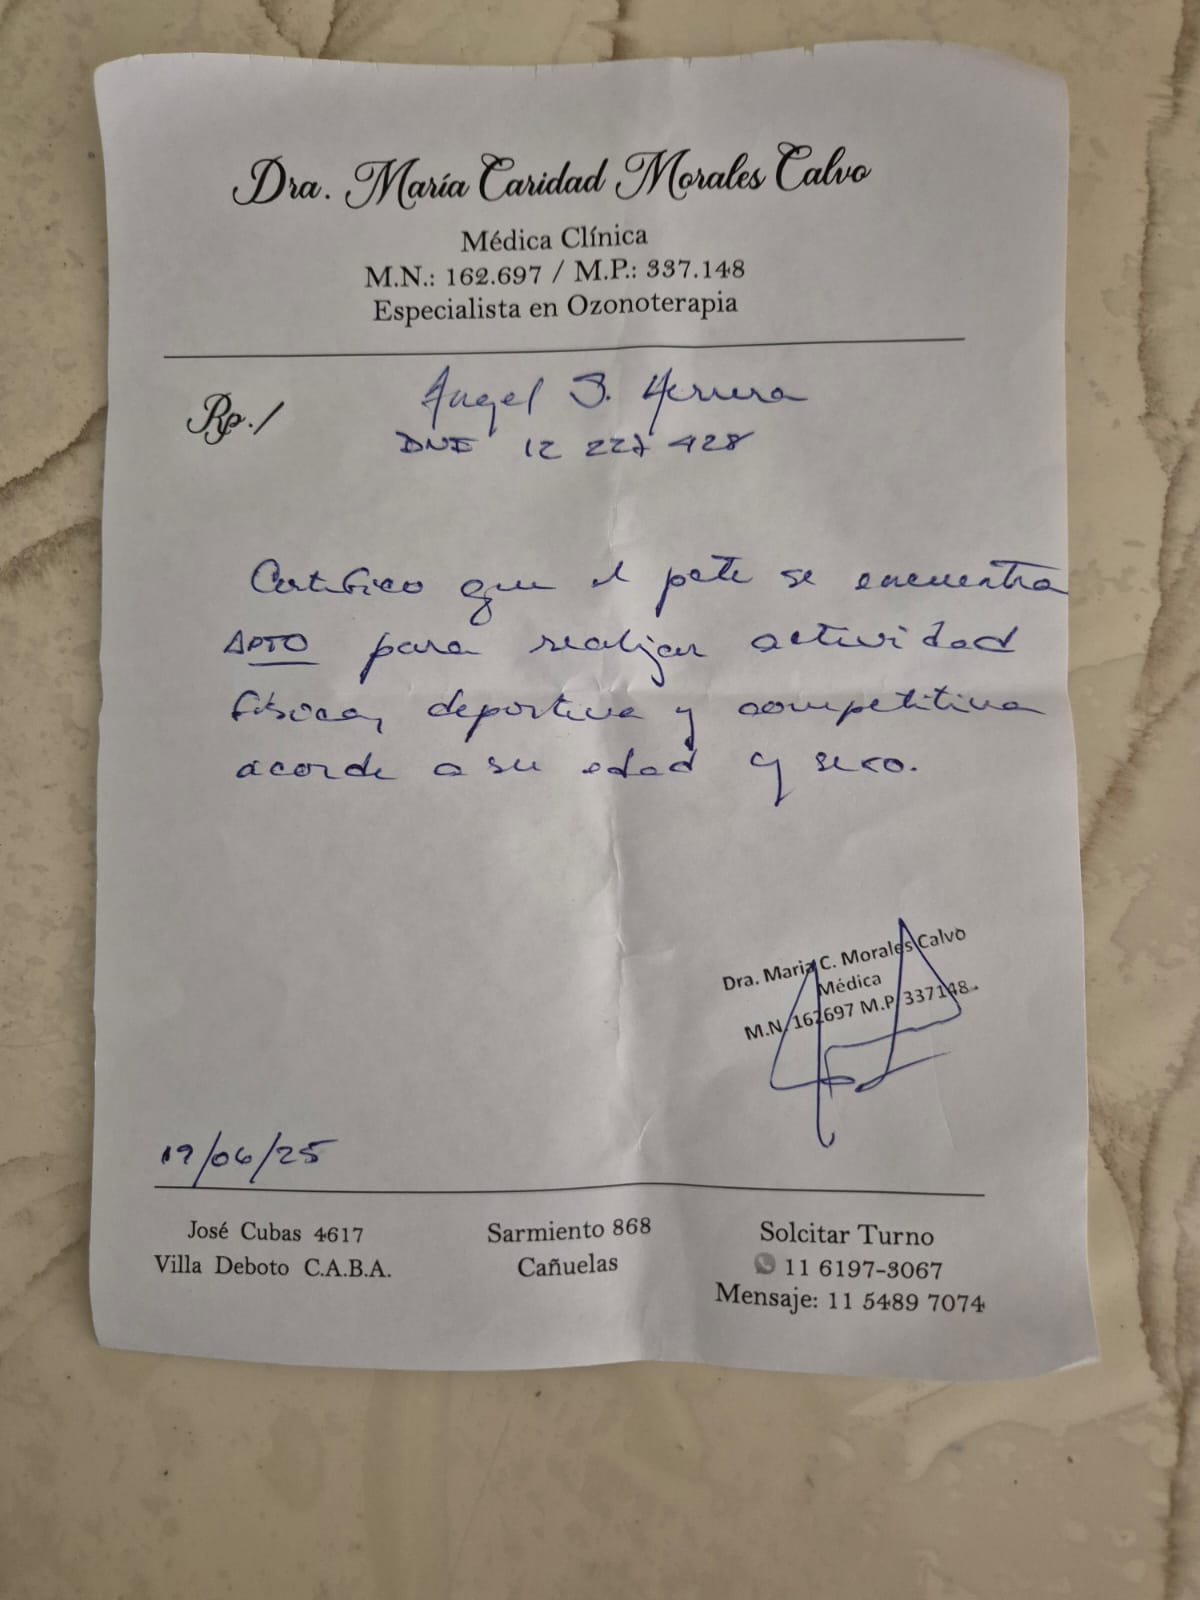 Dra. María Caridad Morales Calvo
Médica Clínica
M.N.: 162.697 / M.P.: 337.148
Especialista en Ozonoterapia
Rp./
Angel S. Herrera
DNI 12 227 428
Certifico que el pcte se encuentra
APTO para realizar actividad
física, deportiva y competitiva
acorde a su edad y sexo.
Dra. Maria C. Morales Calvo
Médica
M.N. 162697 M.P. 337148
19/06/25
José Cubas 4617
Villa Deboto C.A.B.A.
Sarmiento 868
Cañuelas
Solcitar Turno
11 6197-3067
Mensaje: 11 5489 7074